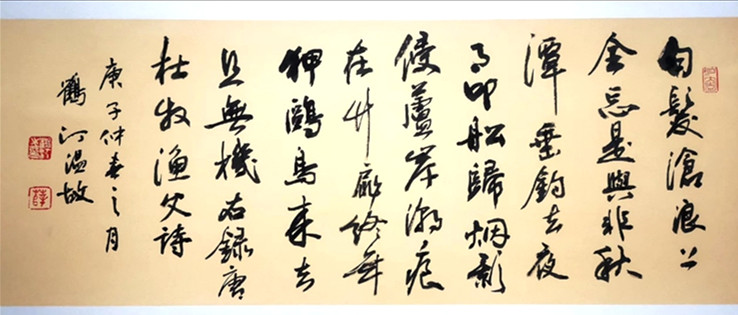 白髮滄浪上
全忘是與非秋
潭垂釣去夜
月叩船歸烟影
侵蘆岸潮痕
在竹扉終年
狎鷗鳥來去
且無機右錄唐
杜牧漁父詩
庚子仲春之月
鶴汀温故